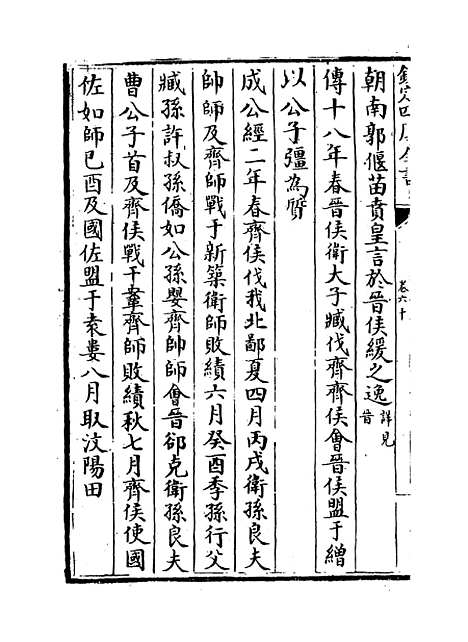 欽定四庫全書
卷六十
朝南郭偃苗賁皇言於晉侯緩之逸詳見晉
傳十八年春晉侯衛大子臧伐齊齊侯會晉侯盟于繒
以公子彊為質
成公經二年春齊侯伐我北鄙夏四月丙戌衛孫良夫
帥師及齊師戰于新築衛師敗績六月癸酉季孫行父
臧孫許叔孫僑如公孫嬰齊帥師會晉郤克衛孫良夫
曹公子首及齊侯戰于鞌齊師敗績秋七月齊侯使國
佐如師已酉及國佐盟于袁婁八月取汶陽田